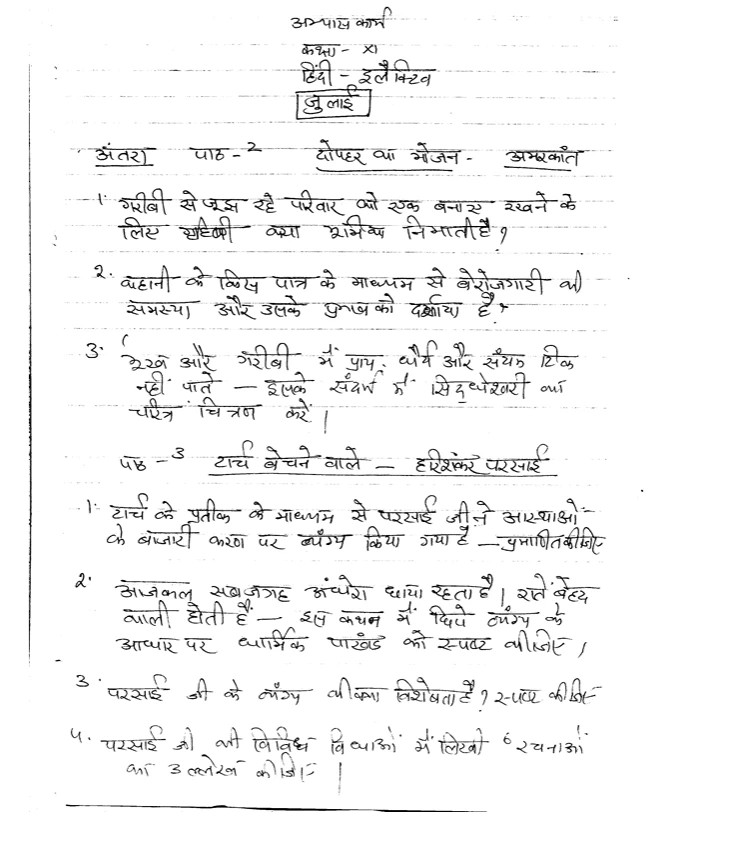 अभ्यास कार्य
कक्षा - XI
हिंदी - इलैक्टिव
जुलाई
अंतरा पाठ - 2 दोपहर का भोजन - अमरकांत
1. गरीबी से जूझ रहे परिवार को एक बनाए रखने के
लिए गृहिणी क्या भूमिका निभाती है?
2. कहानी के किस पात्र के माध्यम से बेरोजगारी की
समस्या और उसके प्रभाव को दर्शाया है?
3. भूख और गरीबी में प्रायः धैर्य और संयम टिक
नहीं पाते - इसके संदर्भ में सिद्धेश्वरी का
चरित्र चित्रण करें।
पाठ - 3 टार्च बेचने वाले - हरिशंकर परसाई
1. टार्च के प्रतीक के माध्यम से परसाई जी ने आस्थाओं
के बाजारी करण पर व्यंग्य किया गया है - प्रमाणित कीजिए
2. आजकल सब जगह अंधेरा छाया रहता है। रातें बेहद
काली होती हैं - इस कथन में छिपे व्यंग्य के
आधार पर धार्मिक पाखंड को स्पष्ट कीजिए।
3. परसाई जी के व्यंग्य की क्या विशेषता है? स्पष्ट कीजिए
4. परसाई जी की विविध विधाओं में लिखी 6 रचनाओं
का उल्लेख कीजिए।